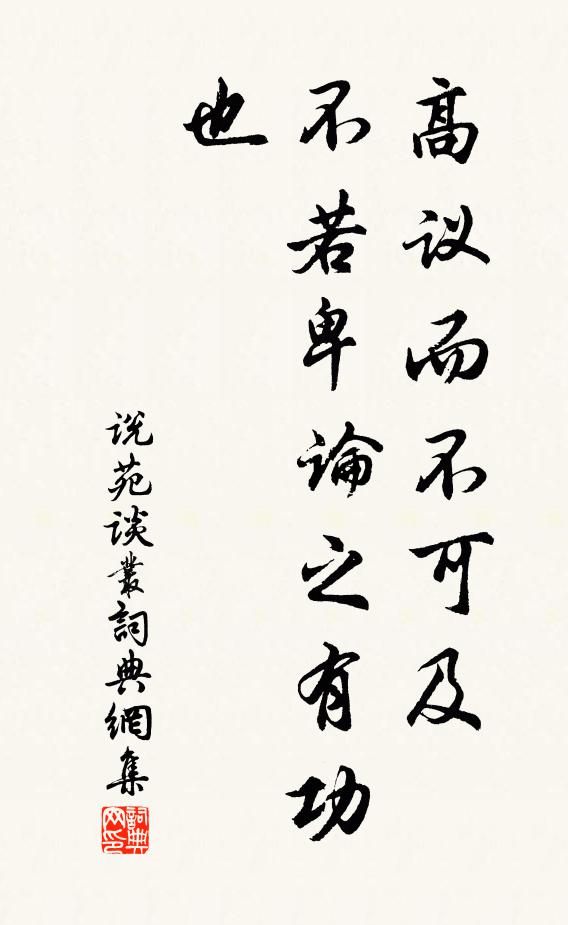 高议而不可及
不若卑論之有功
也
说苑谈叢詞典網集
詞典
网印